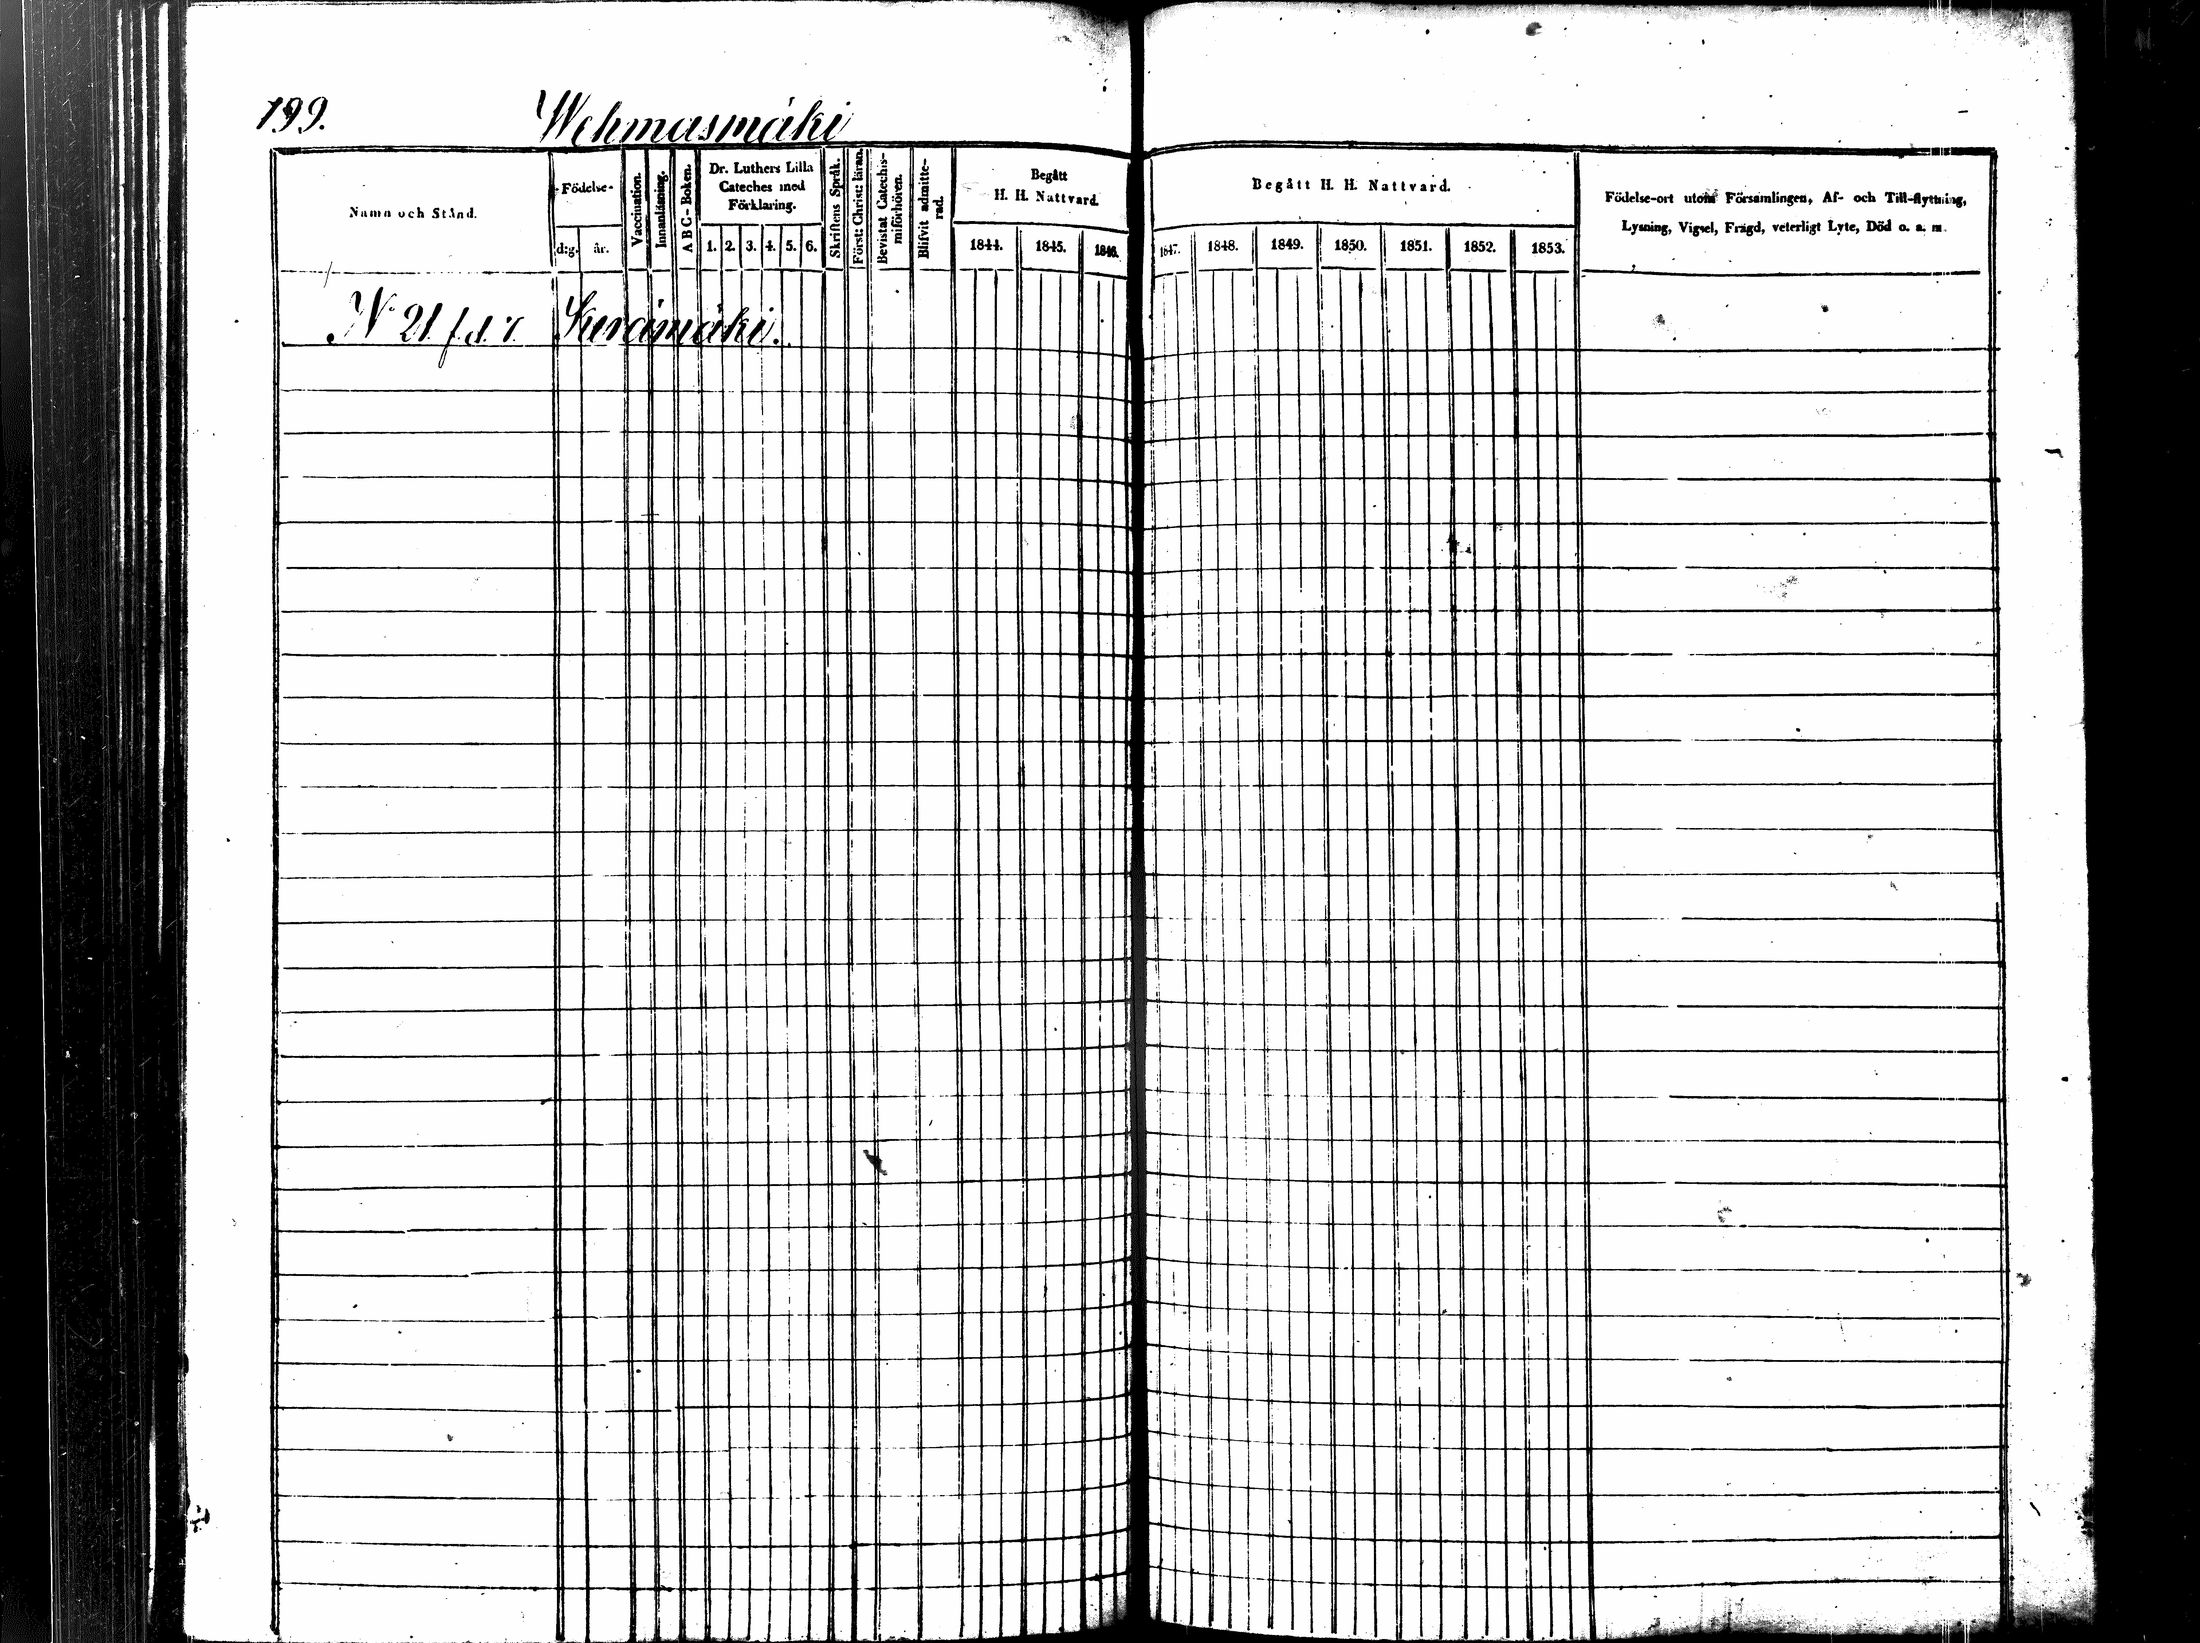 199. Wehmasmäki
Namn och Stånd.
Födelse-
d:g. år.
Vaccination.
Innanläsning.
A B C - Boken.
Dr. Luthers Lilla
Cateches med
Förklaring.
1. 2. 3. 4. 5. 6.
Skriftens Språk.
Först: Christ: läran.
Bevistat Catechis-
miförhören.
Blifvit admitte-
rad.
Begått
H. H. Nattvard.
1844. 1845. 1846.
Begått H. H. Nattvard.
1847. 1848. 1849. 1850. 1851. 1852. 1853.
Födelse-ort utom Församlingen, Af- och Till-flyttning,
Lysning, Vigsel, Frägd, veterligt Lyte, Död o. a. m.
N 21